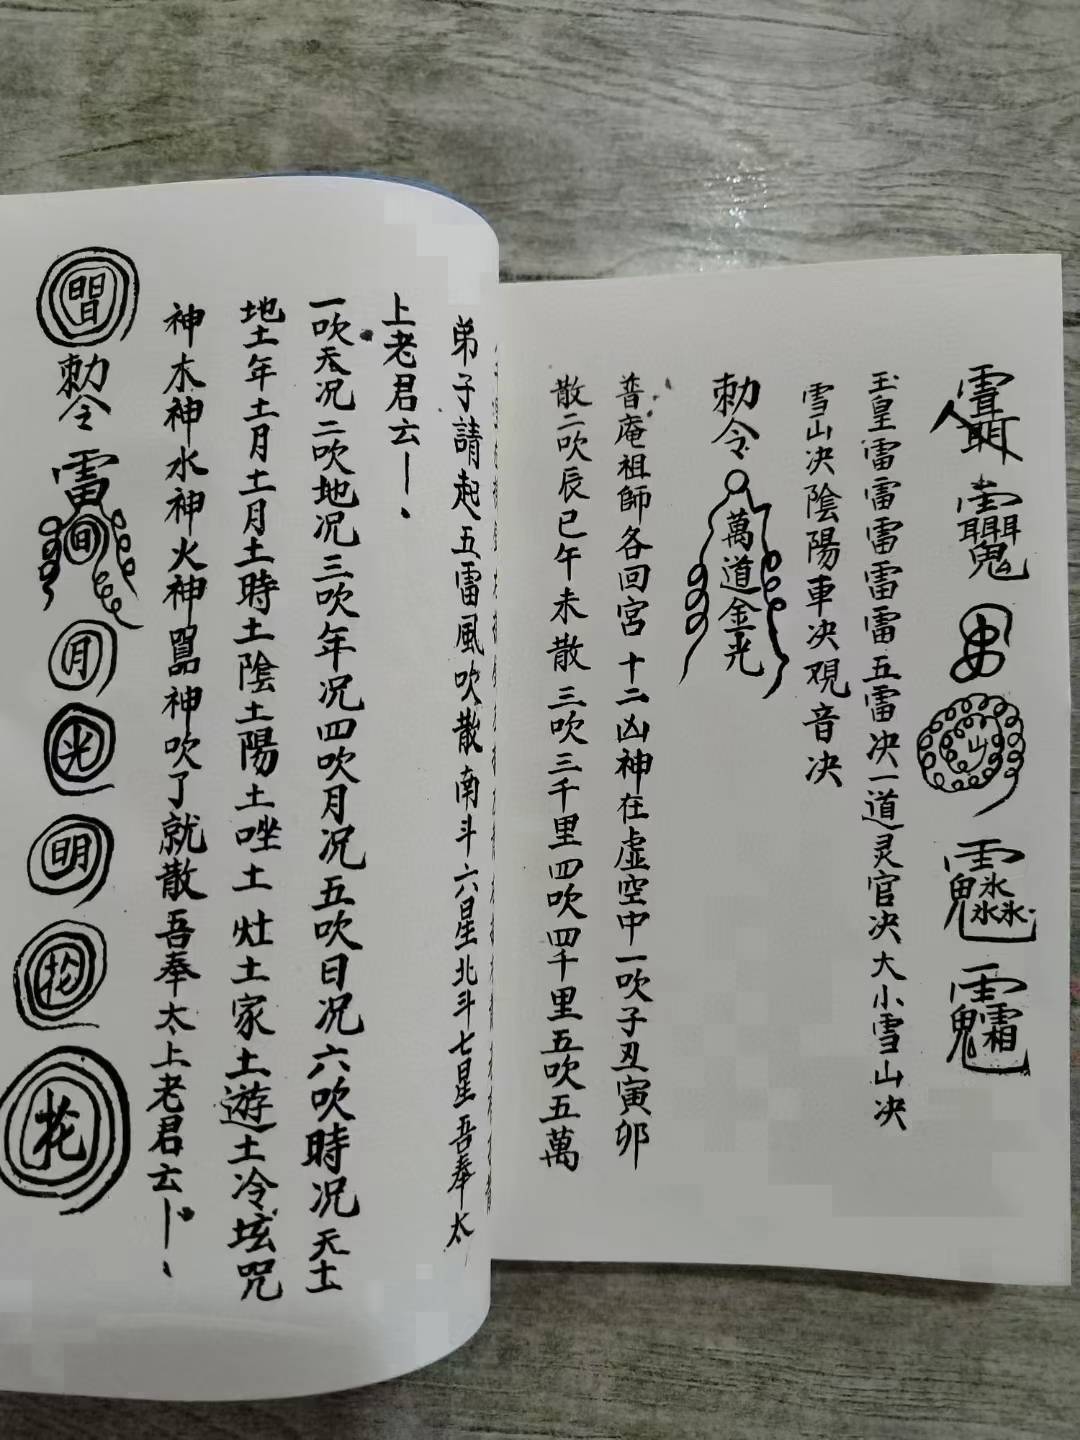 玉皇雷雷雷雷雷五雷决一道灵官决大小雪山决
雪山决陰陽車决观音决
勅令
萬道金光
普庵祖師各回宮十二凶神在虛空中一吹子丑寅卯
散二吹辰巳午未散三吹三千里四吹四千里五吹五萬
弟子請起五雷風吹散南斗六星北斗七星吾奉太
上老君云
一吹天况二吹地况三吹年况四吹月况五吹日况六吹時况天土
地土年土月土月土時土陰土陽土唑土灶土家土遊土冷垓咒
神木神水神火神噐神吹了就散吾奉太上老君云
勅令
雷
月
光
明